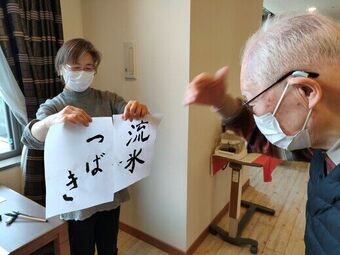 流氷
つばき